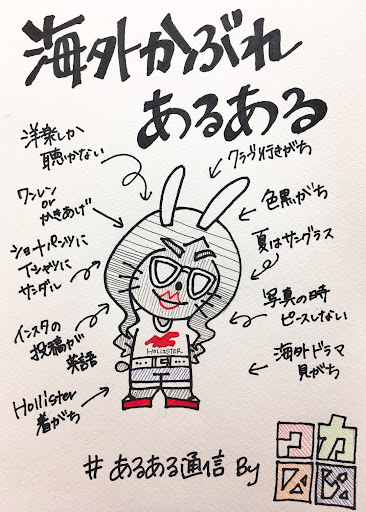 海外かぶれ
あるある
洋楽しか
聴かない
ワンレン
or
かきあげ
ショートパンツに
Tシャツに
サンダル
インスタの
投稿が
英語
Hollister
着がち
クラブ行きがち
色黒がち
夏はサングラス
写真の時
ピースしない
海外ドラマ
見がち
HOLLISTER
#あるある通信 By